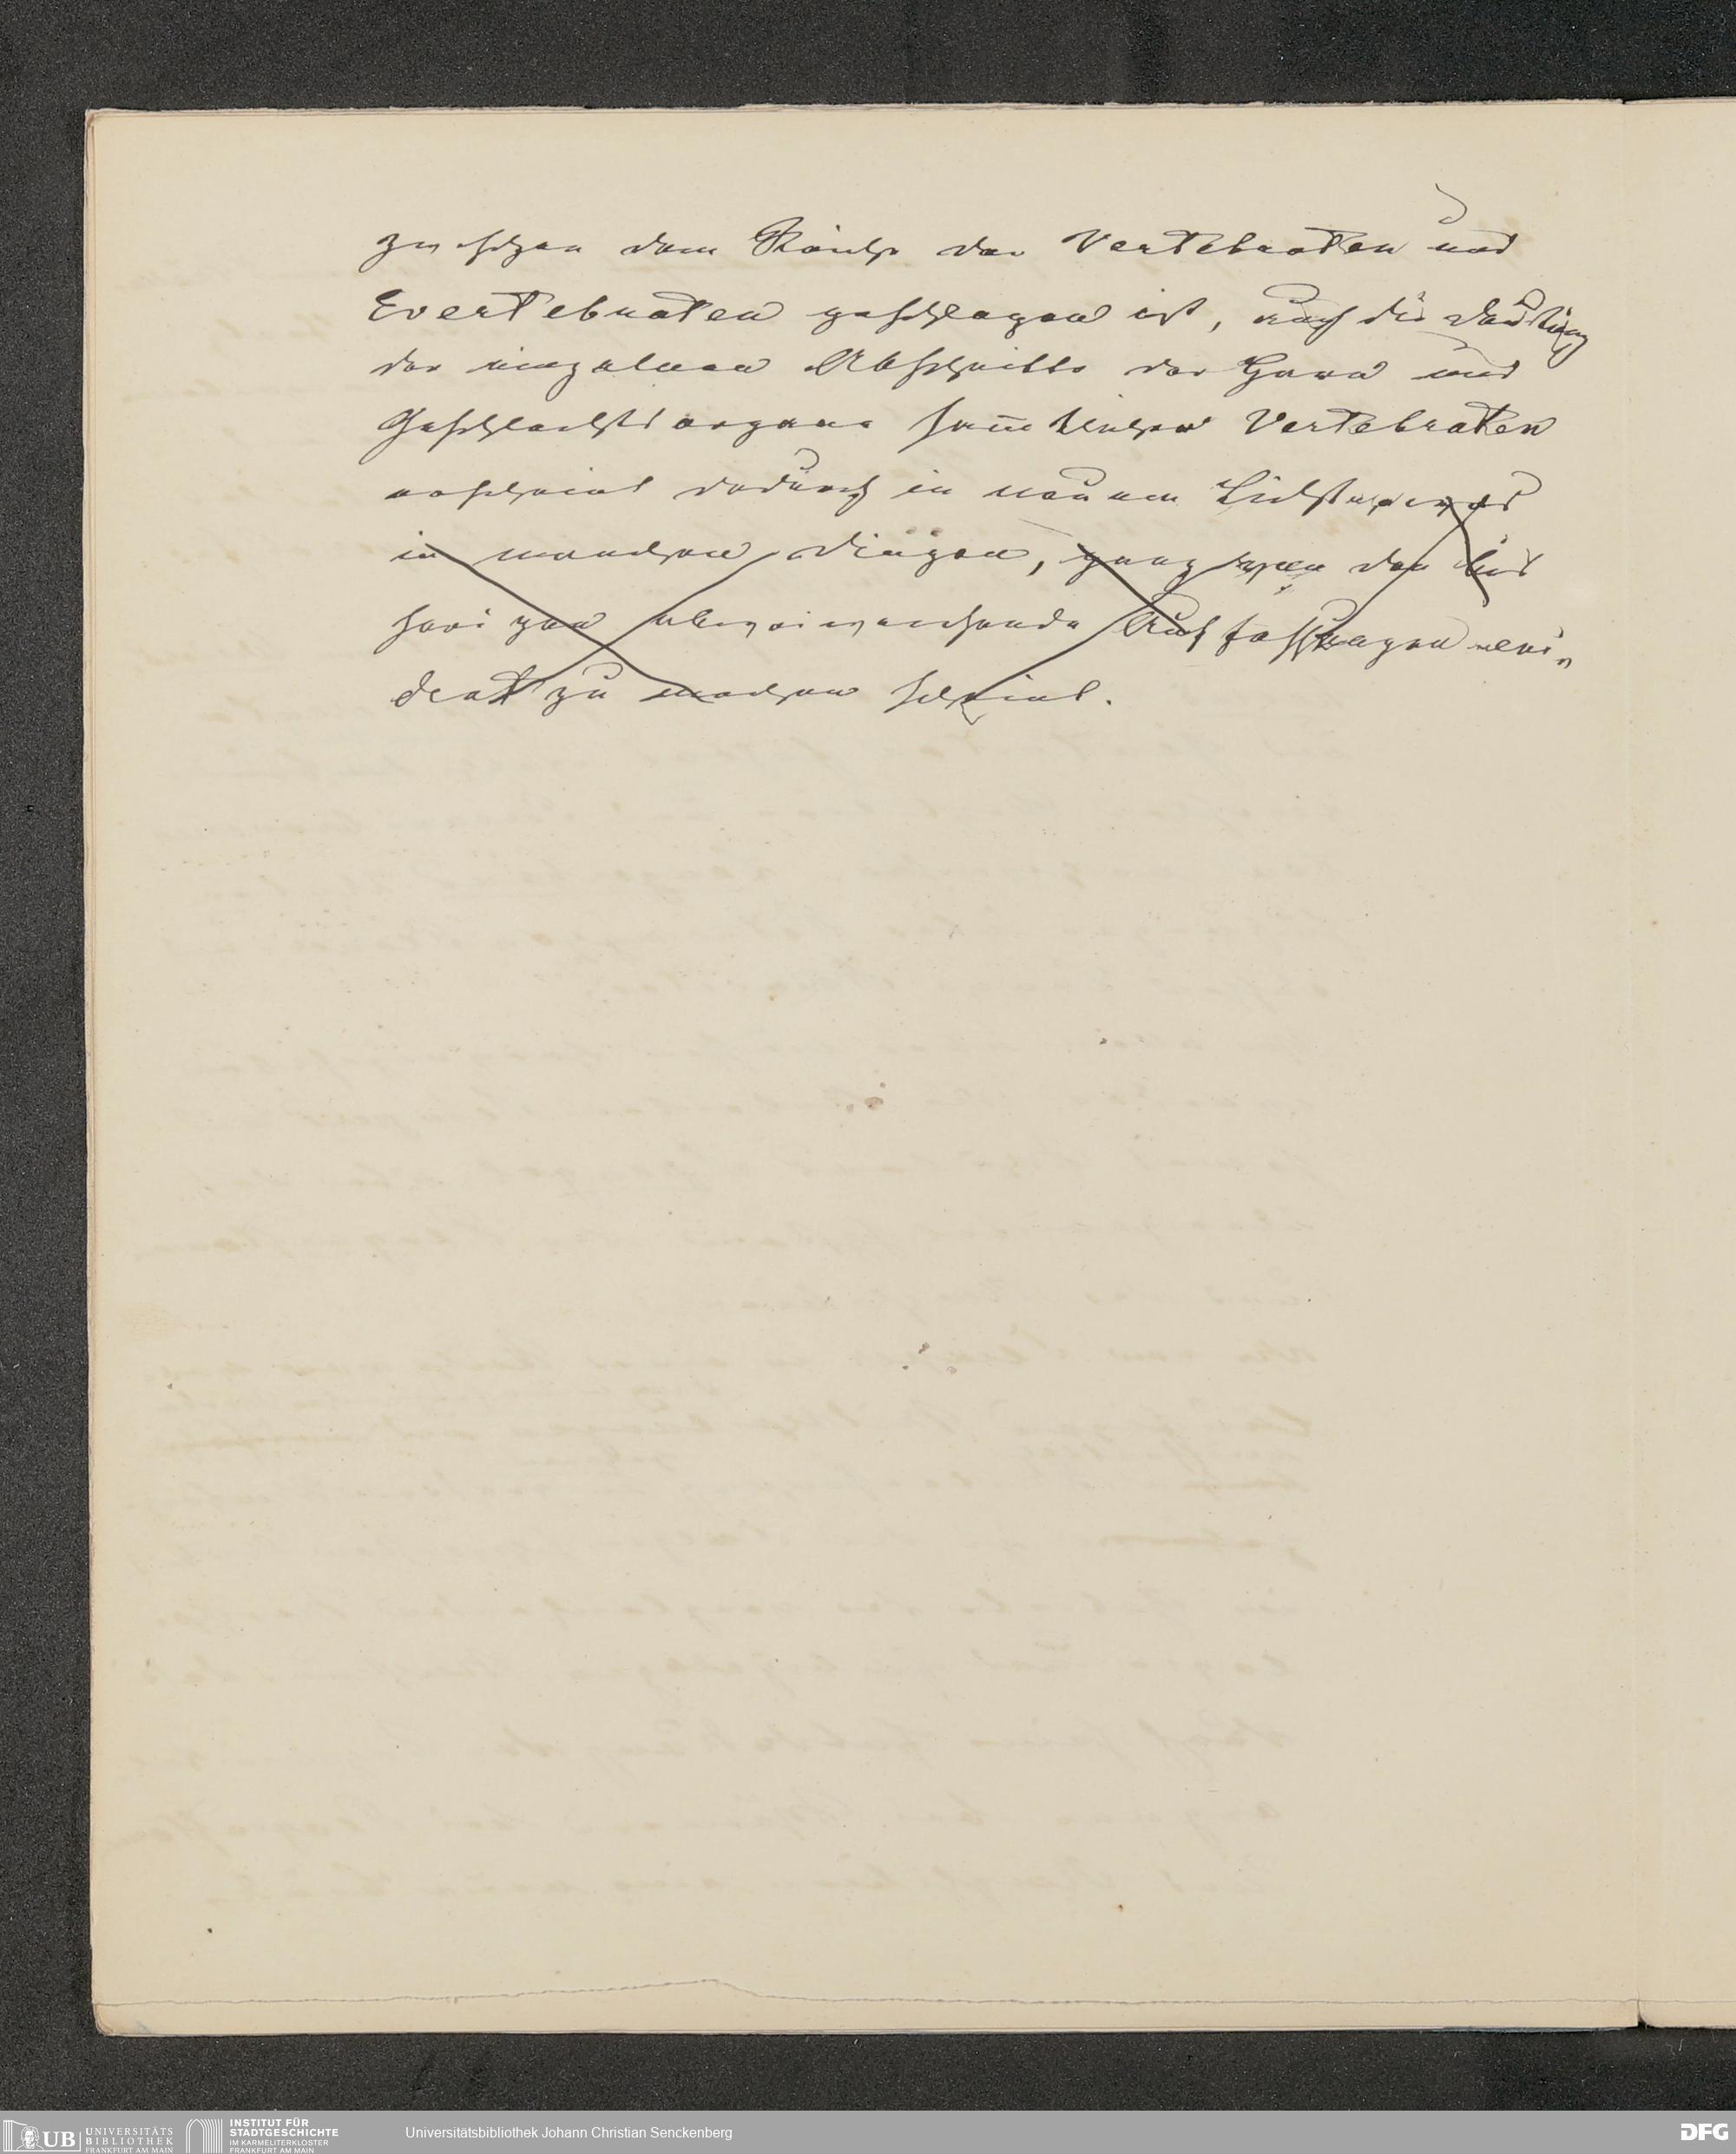 zwischen dem Reiche der Vertebraten und
Evertebraten geschlagen ist, auch die Deutung
der einzelnen Abschnitte der Harn und
Geschlechtsorgane sam̅tlicher Vertebraten
erscheint dadurch in neuem Lichte
in manchen Dingen, ganz den bis
herigen abweichende Auffassungen evi„
dent zu machen scheint.
UB UNIVERSITÄTS
BIBLIOTHEK
FRANKFURT AM MAIN
INSTITUT FÜR
STADTGESCHICHTE
IM KARMELITERKLOSTER
FRANKFURT AM MAIN
Universitätsbibliothek Johann Christian Senckenberg
DFG